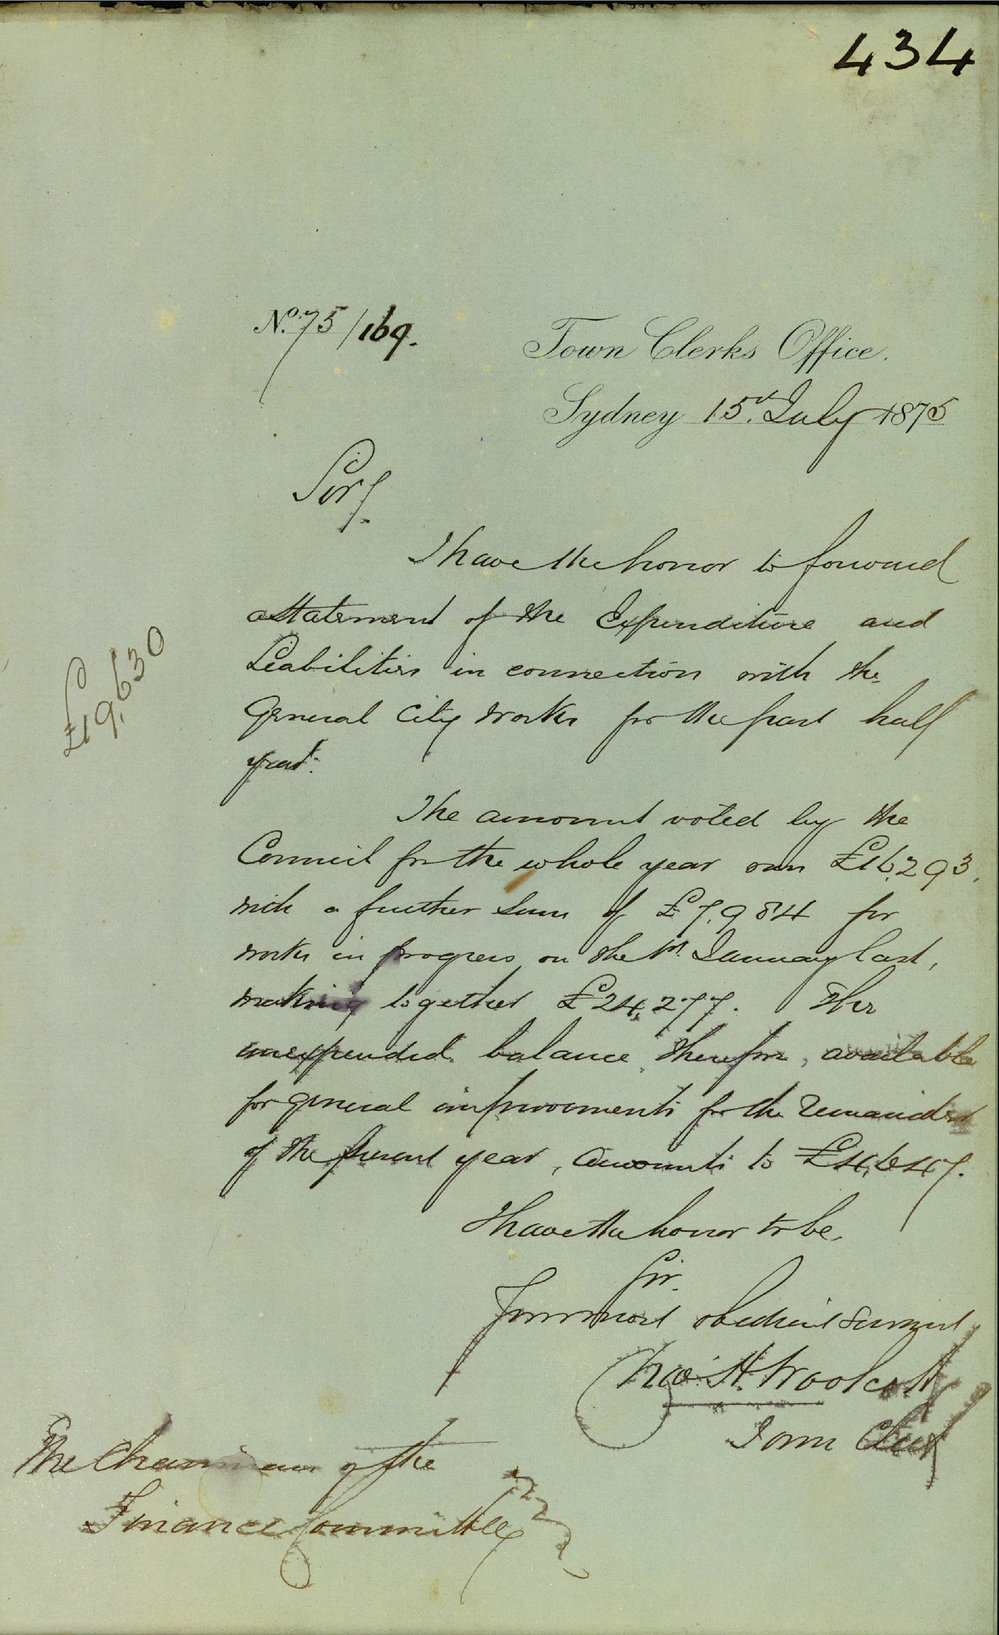 434
No. 75/169.
Town Clerks Office.
Sydney 15th July 1875
Sir/.
I have the honor to forward
a Statement of the Expenditure and
Liabilities in connection with the
General City Works for the past half
year.
£19,630
The amount voted by the
Council for the whole year was £16,293,
with a further sum of £7,984 for
works in progress on the 1st January last,
making together £24,277. The
unexpended balance, therefore, available
for general improvements for the remainder
of the present year, amounts to £4,647.
I have the honor to be,
Sir.
Your most obedient servant
Chas. H. Woolcott
Town Clerk
The Chairman of the
Finance Committee